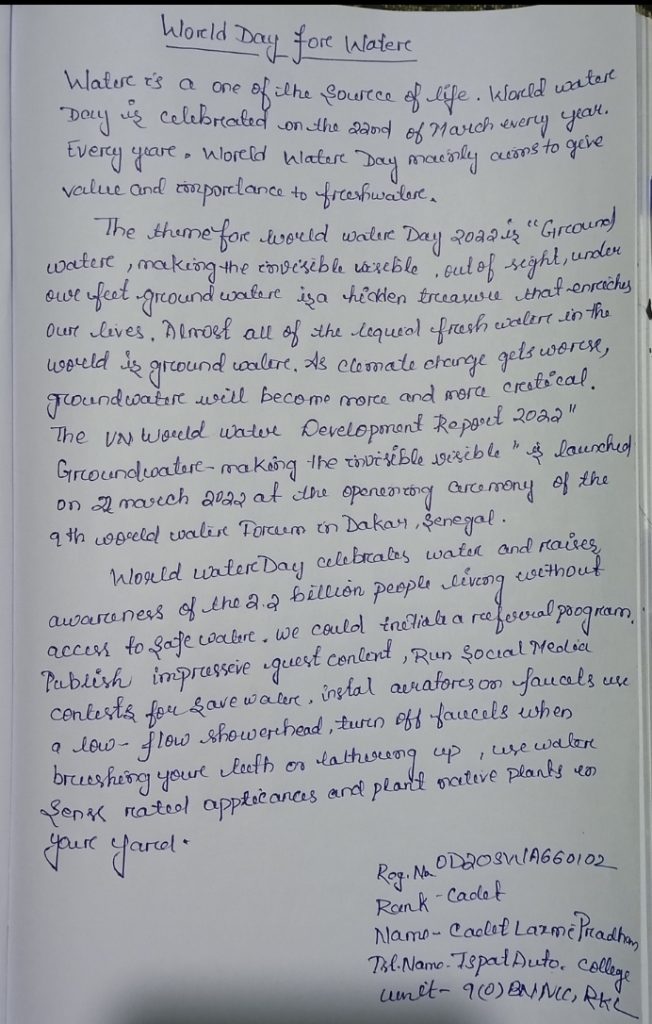 World Day fore Watere
Watere is a one of the source of life. World watere
Day is celebreated on the 22nd of March every year.
Everey yeare. World Watere Day mainly aims to give
value and importance to freshwatere.
The theme fore world watere Day 2022 is "Ground
watere, making the invisible visible, out of sight, under
oure feet ground watere is a hidden treasure that enriches
oure lives. Almost all of the liqued fresh watere in the
world is ground watere. As climate change gets worse,
groundwatere will become more and more critical.
The UN World Water Development Report 2022"
Groundwatere-making the invisible visible" is launched
on 21 march 2022 at the openening ceremony of the
9th world water Forum in Dakar, Senegal.
World watere Day celebrates water and raises
awareness of the 2.2 billion people living without
access to safe watere. we could initiate a referral program.
Publish impressive guest content, Run Social Media
contests for save watere, instal aeratores on faucets use
a low-flow showerhead, turn off faucets when
brushing youre teeth or lathering up, use watere
Sense rated applicances and plant native plants in
youre yard.
Reg. No OD20SWIA660102
Rank - Cadet
Name - Cadet Laxmi Pradhan
Ist. Name. Ispat Auto. College
unit - 9(O) BN NCC, RKL